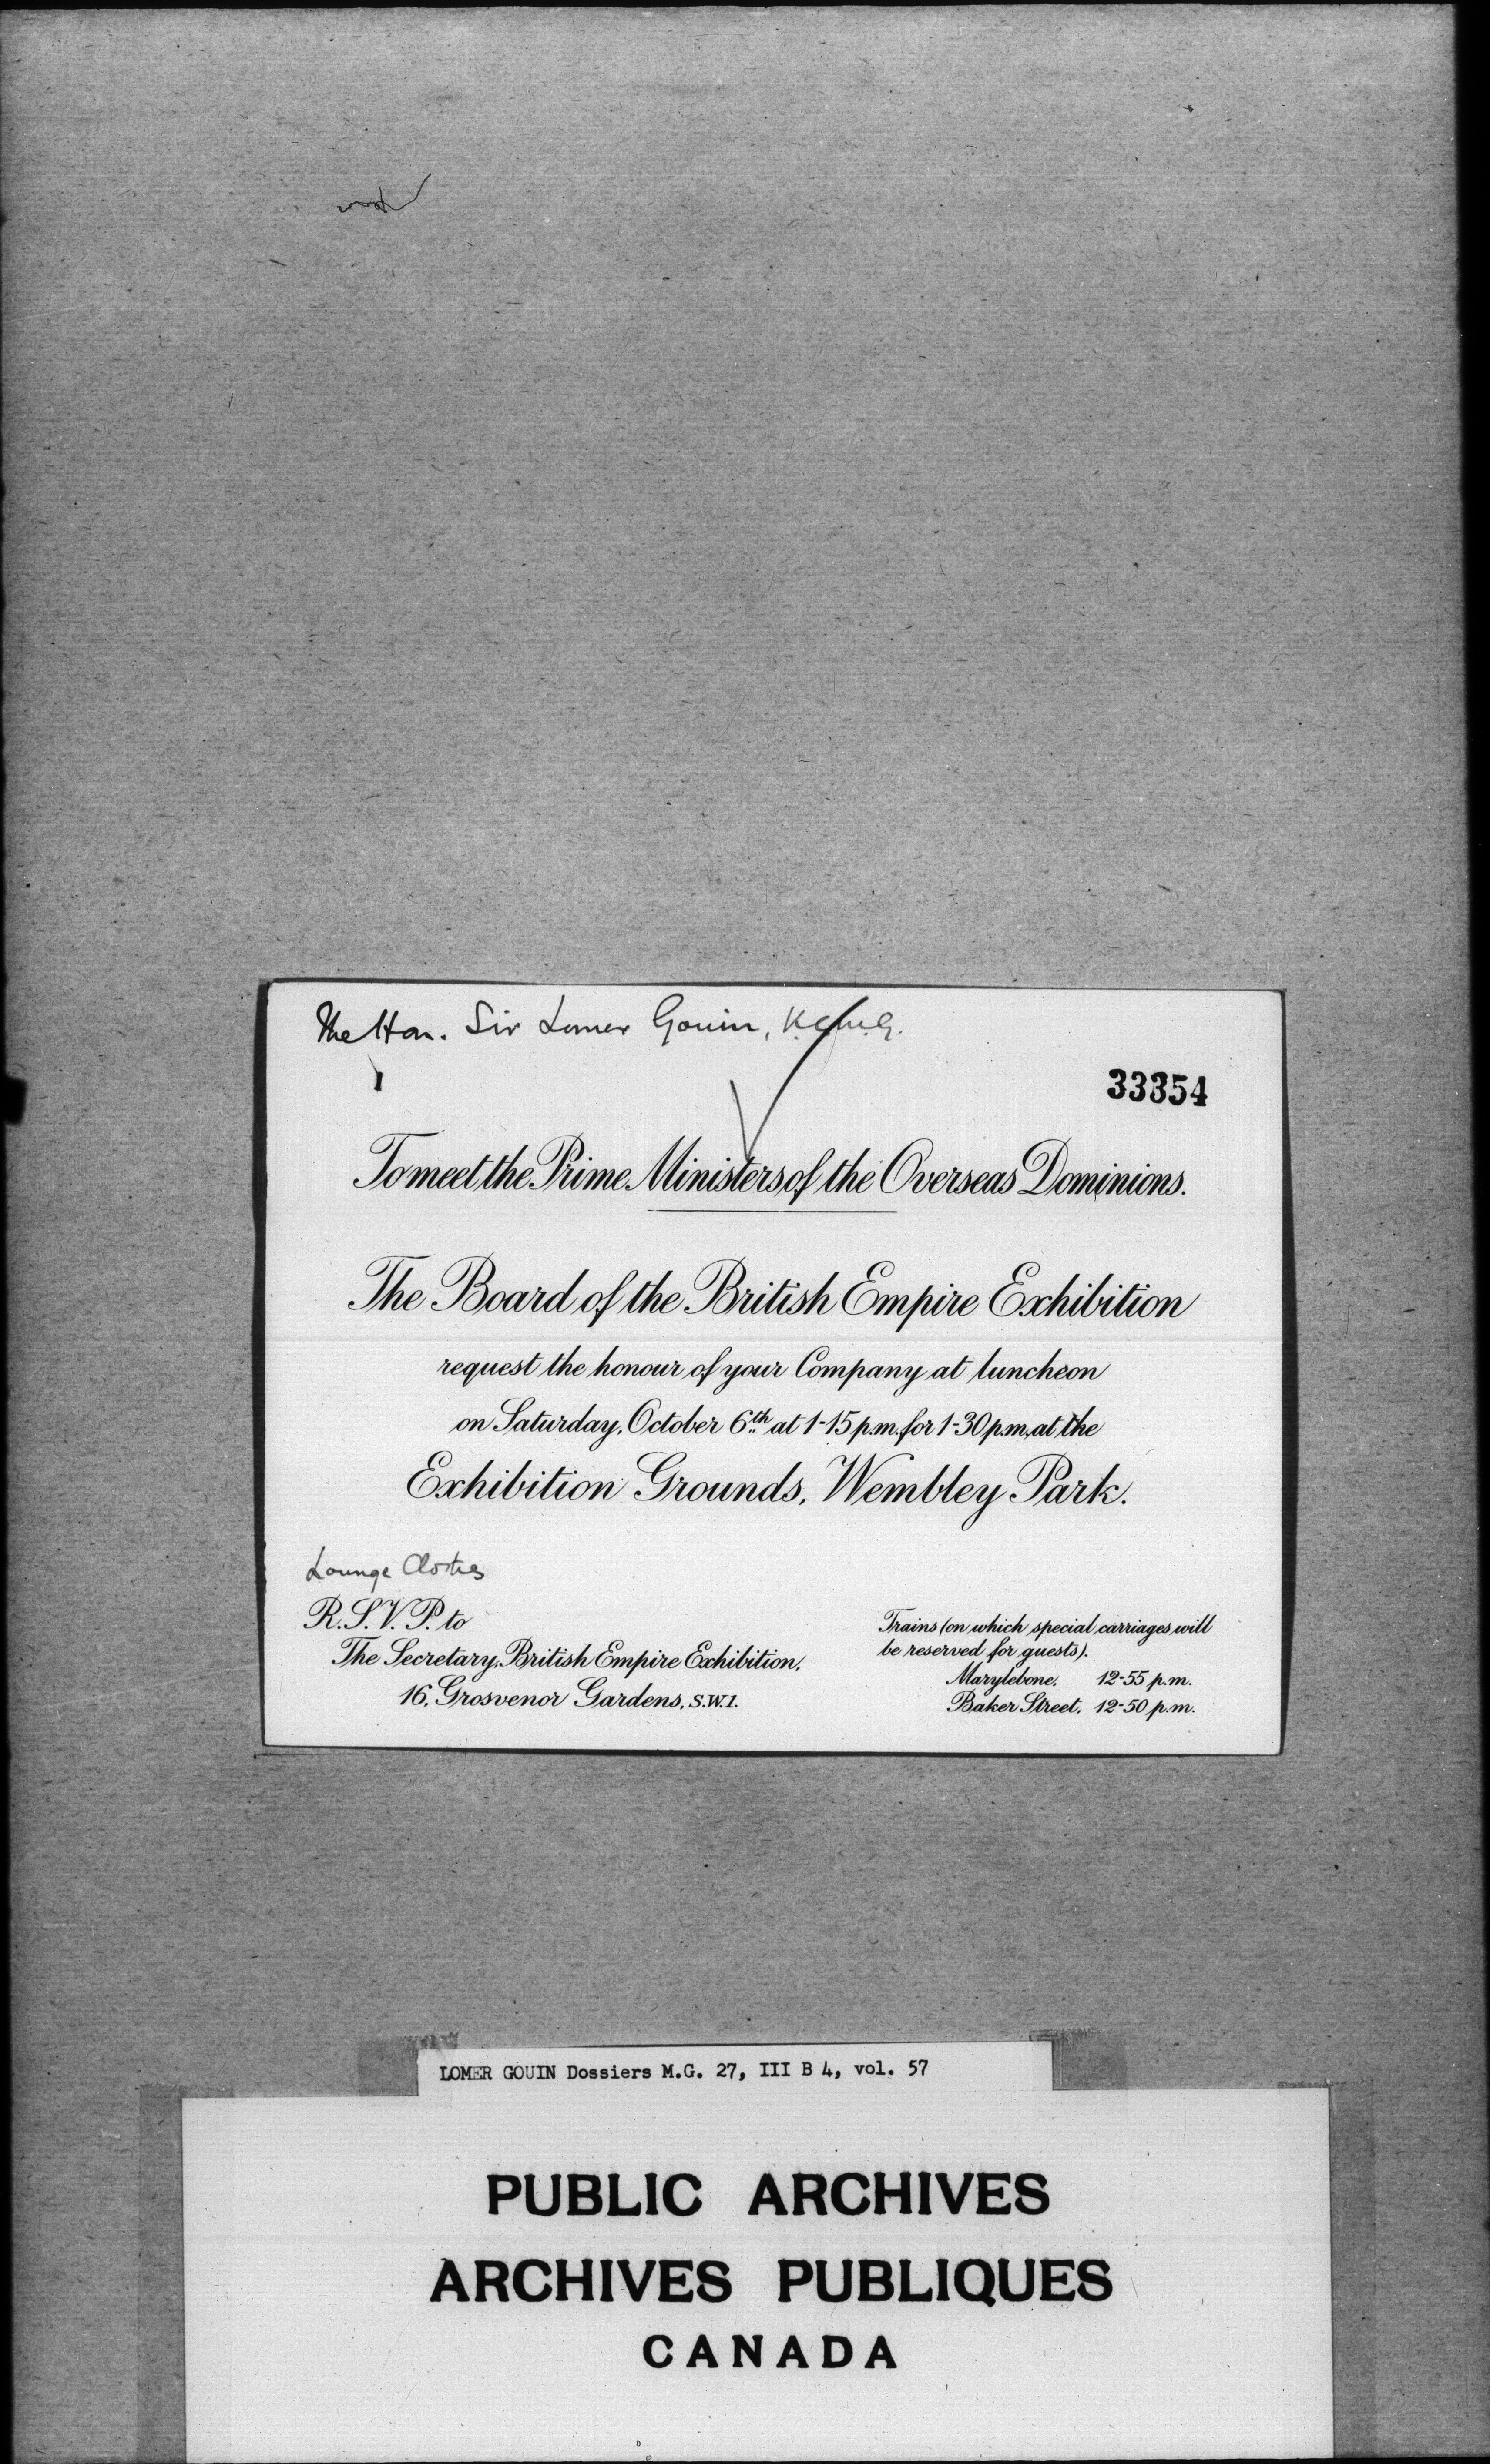 The Hon. Sir Lomer Gouin, K.C.M.G.
33354
To meet the Prime Ministers of the Overseas Dominions.
The Board of the British Empire Exhibition
request the honour of your Company at luncheon
on Saturday, October 6th at 1-15 p.m. for 1-30 p.m. at the
Exhibition Grounds, Wembley Park.
Lounge Clothes
R.S.V.P. to
The Secretary, British Empire Exhibition,
16, Grosvenor Gardens, S.W.1.
Trains (on which special carriages will
be reserved for guests).
Marylebone, 12-55 p.m.
Baker Street, 12-50 p.m.
LOMER GOUIN Dossiers M.G. 27, III B 4, vol. 57
PUBLIC ARCHIVES
ARCHIVES PUBLIQUES
CANADA